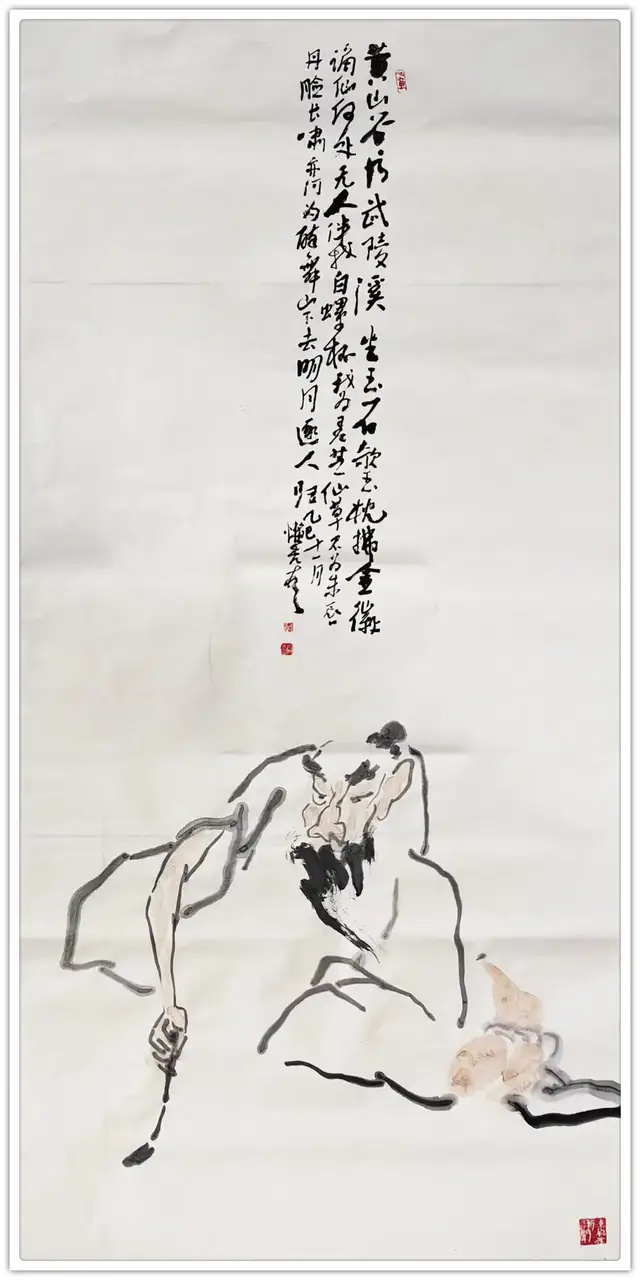 黄山谷 武陵溪 坐玉石欹玉枕拂金徽
谪仙何处无人伴我白螺杯我为灵芝仙草不为朱唇
丹脸长啸亦何为醉舞山下去明月逐人归乙巳十一月